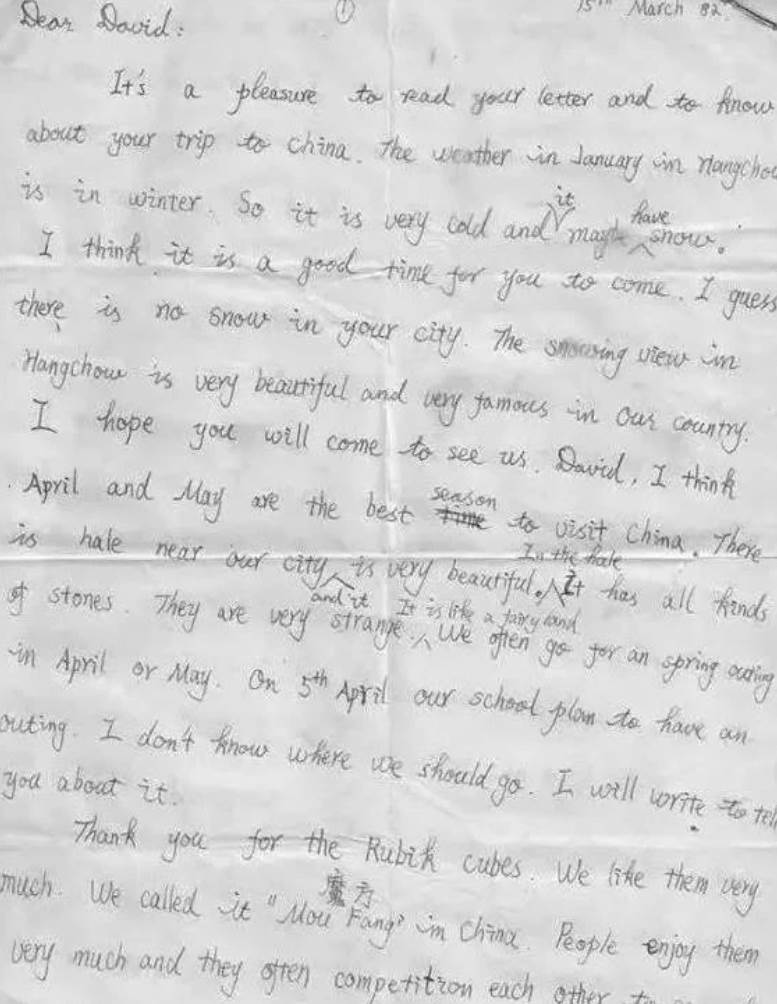 ①
15th March 82.
Dear David:
It's a pleasure to read your letter and to know
about your trip to China. The weather in January in Hangchou
is in winter. So it is very cold and it may have snow.
I think it is a good time for you to come. I guess
there is no snow in your city. The snowing view in
Hangchow is very beautiful and very famous in our country.
I hope you will come to see us. David, I think
April and May are the best season to visit China. There
is hale near our city and it is very beautiful. In the hale It has all kinds
of stones. They are very strange. It is like a fairy land We often go for an spring outing
in April or May. On 5th April our school plan to have an
outing. I don't know where we should go. I will write to tell
you about it.
Thank you for the Rubik cubes. We like them very
much. We called it "Mou Fang" 魔方 in China. People enjoy them
very much and they often competition each other